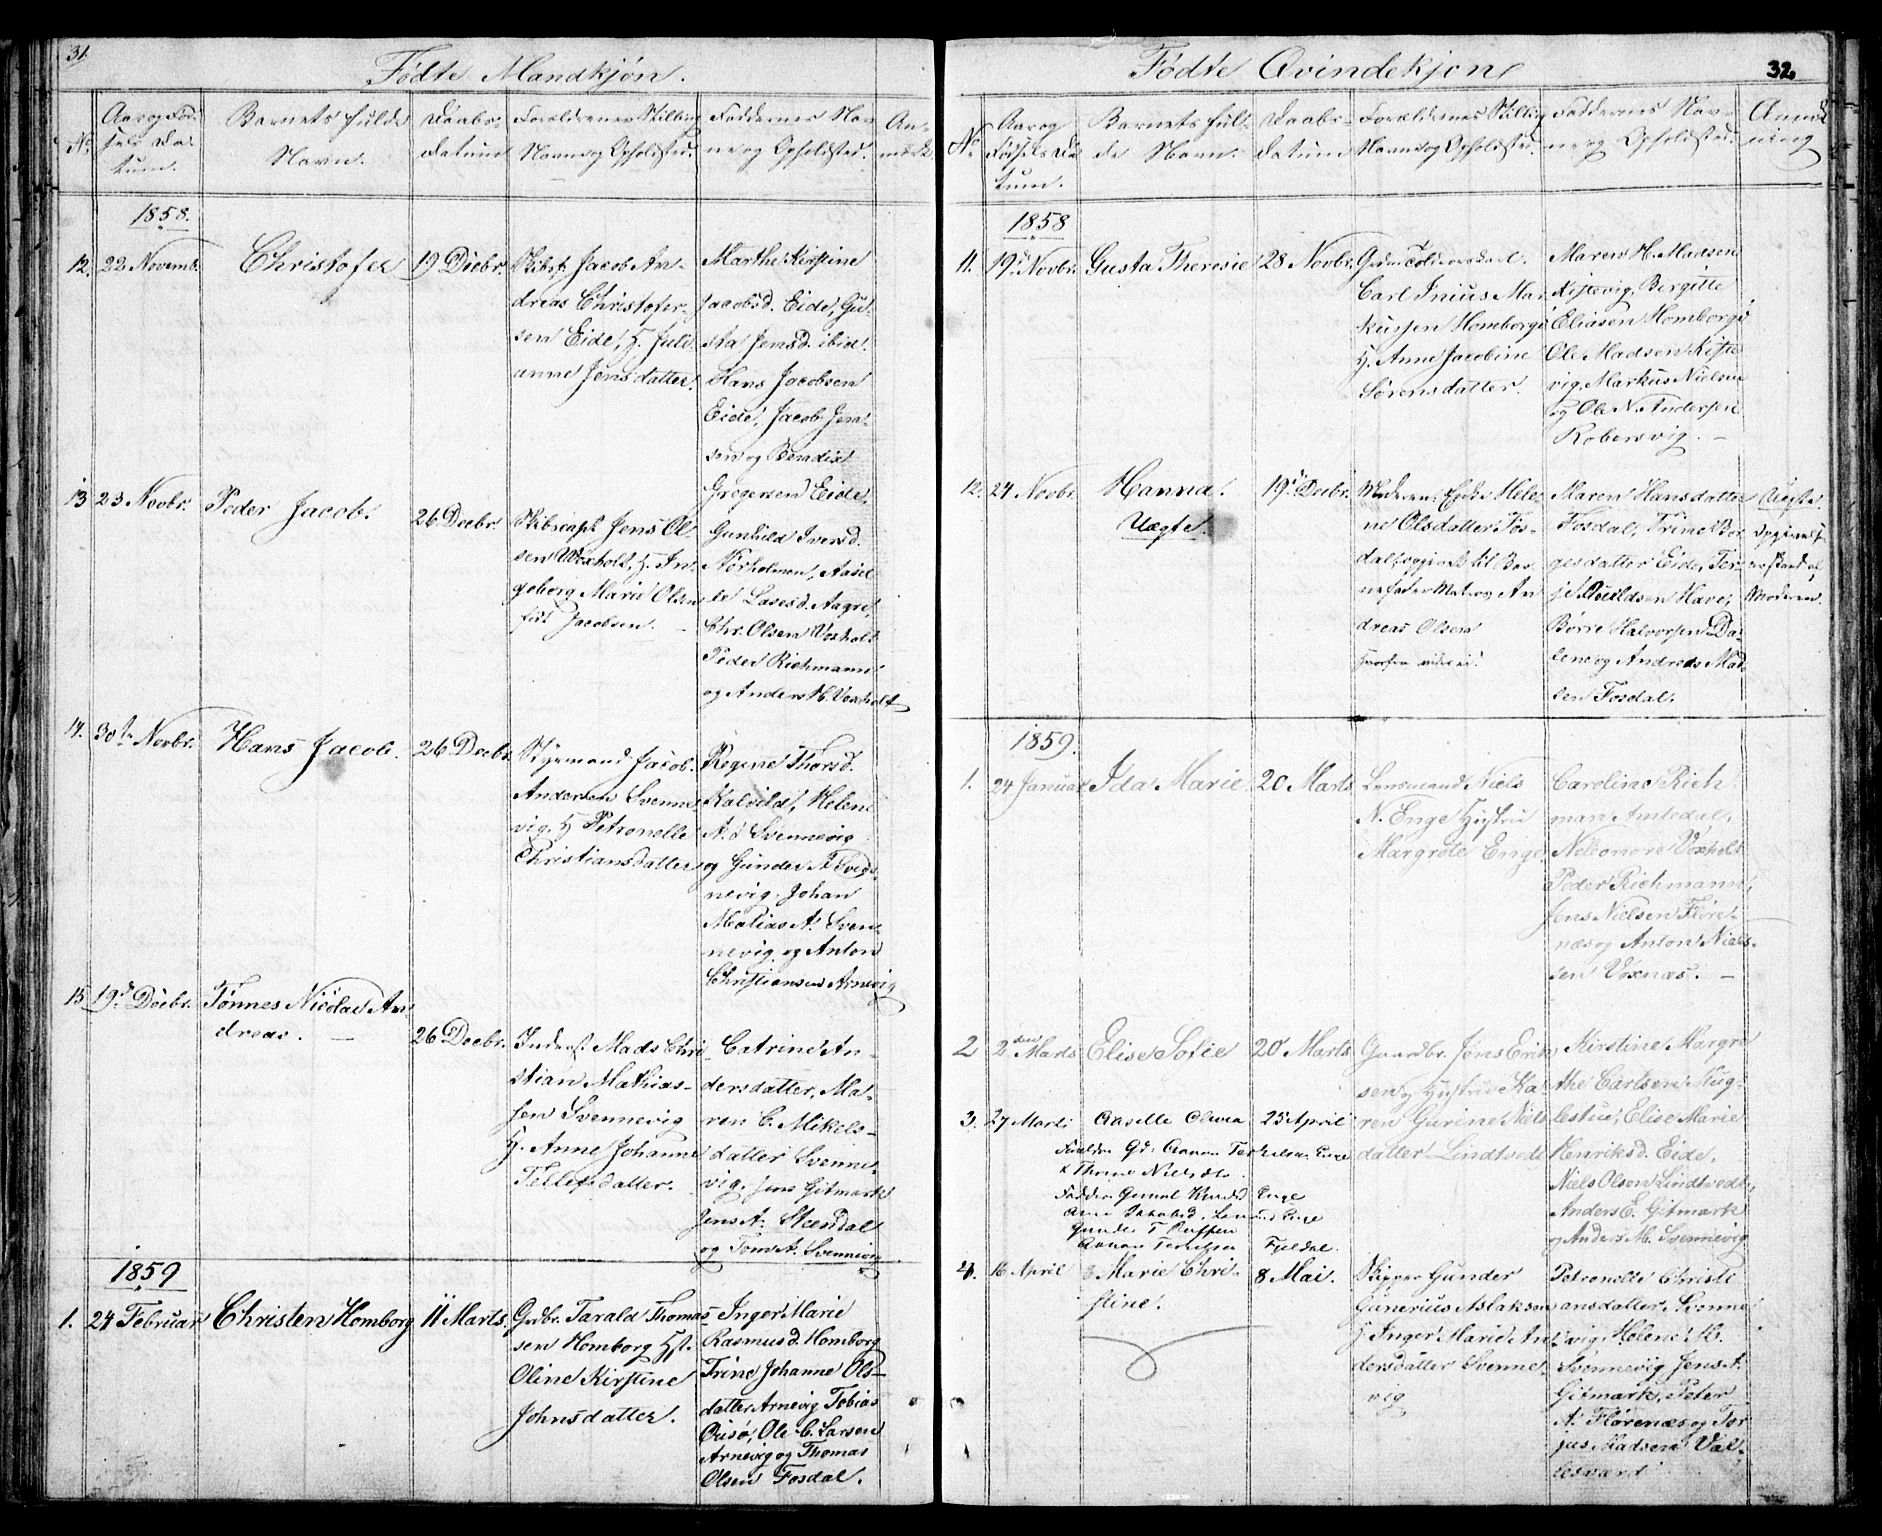 31.
Fødte Mandkjøn.
No.
Aar og Fød-
sels Da-
tum.
Barnets fulde
Navn.
Daabs-
datum
Forældrenes Stilling
Navn og Opholdsted.
Faddernes Nav
ne og Opholdsted.
An-
mærk.
1858.
12. 22 Novemb.
Christofer
19 Decbr.
Skibsf. Jacob An-
dreas Christofer-
sen Eide, H. Juli-
anne Jensdatter.
Marthe Kirstine
Jacobsd. Eide, Gu-
sta Jensd. ibid.
Hans Jacobsen
Eide, Jacob Jen-
sen og Bendix
Gregersen Eide.
13 23 Novbr.
Peder Jacob.
26 Decbr.
Skibscapt Jens Ol-
sen Woxholt, H. In-
geborg Marie Olsen
født Jacobsen.
Gunhild Iversd.
Nørholmen, Aasel-
le Lasesd. Aagre,
Chr. Olsen Voxholt
Peder Richmann
og Anders H. Voxholt
14. 30te Novbr.
Hans Jacob.
26 Decbr.
Styrmand Jacob
Andersen Svenne-
vig, H. Petronelle
Christiansdatter
Regine Thorsd.
Kalvild, Helene
A.d Svennevig
og Gunder A. Sven-
nevig. Johan
Matias A. Sven-
nevig og Anton
Christiansen Arnevig
15 19de Decbr.
Tønnes Nicolai An-
dreas.
26 Decbr.
Inderst Mads Chri-
stian Mathias-
sen Svennevig
H. Anne Johanne
Tellefsdatter.
Catrine An-
dersdatter, Ma-
ren C. Mikels-
datter Svenne-
vig. Jens Gitmark
Jens A. Steendal
og Tom A. Svennevig
1859
1. 24 Februar
Christen Homborg
11 Marts.
Grdbr. Tarald Thomas-
sen Homborg Hst.
Oline Kirstine
Johnsdatter.
Inger Marie
Rasmusd. Homborg
Trine Johanne Ols-
datter Arnevig Tobias
Ouisø, Ole C. Larsen
Arnevig og Thomas
Olsen Fosdal.
32
Fødte Qvindekjøn
No
Aar og
Fødsels Da
tum.
Barnets ful-
de Navn.
Daabs-
datum
Forældrenes Stilling
Navn og Opholdsted.
Faddernes Nav-
ne og Opholdsted.
Anmærk
ning
1858
11. 19de Novbr.
Gusta Theresie
28 Novbr.
Carl Inius Mar-
kussen Homborg
H. Anne Jacobine
Sørensdatter.
Maren H. Madsen
Kistevig, Birgitte
Eliasen Homborg
Ole Madsen Kiste
vig, Markus Nielsen
og Ole N. Andersen
Kobersvig.
12. 24 Novbr.
Hanna.
Uægte.
19 Decbr.
Moderen: Enke Hele-
ne Olsdatter Fos-
dal, opgivet til Bar-
nefader Matros An
dreas Olsen
Maren Hansdatter
Fosdal, Trine Bor-
gesdatter Eide, Ter-
je Bouldsen Have,
Børre Halvorsen Da-
lene og Andreas Mad-
sen Fosdal.
Uægte.
Moderen.
1859.
1. 24 Januar
Ida Marie
20 Marts
Lensmand Niels
N. Enge Hustru
Margrete Enge
Caroline Rich
man Amtedal,
Neleonore Voxholt
Peder Richmann,
Jens Nielsen Fløre-
næs og Anton Niel-
sen Voxnæs.
2 2den Marts
Elise Sofie
20 Marts
Gaardbr. Jens Erik
sen og Hustru Ka-
ren Gurine Niels
datter Lindtvedt
Kirstine Margre
the Carlsen Kug-
lestue, Elise Marie
Henriksd. Eide,
Niels Olsen Lindtvedt,
Anders E. Gitmark
og Anders M. Svennevig
3. 27 Marts
Aaselle Olivia
25 April
Forældre Gd: Aanon Terkelsen Enge
& Thrine Nielsdtr.
Faddere Gunel Knudsd Enge
Gunder T
Aanon Terkelsen Fjeldal.
4. 16 April
Marie Chri-
stine.
8 Mai.
Skipper Gunder
Gunerius Aslaksen
H. Inger Marie An-
dersdatter Svenne-
vig
Petronelle Christi
ansdatter, Svenne-
vig, Helene M.
Svennevig Jens A.
Gitmark, Peter
A. Flørenæs og Ter
jus Madsen Val-
lesværd